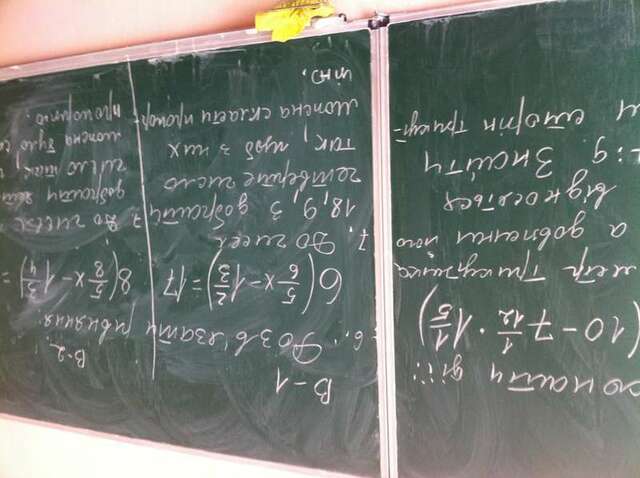 дії:
(10 - 7 1/12 · 1 1/5)
метр трикутника
а довжини його
відносяться
Знайти
сторін трикут-
В-1
6. Розв'язати рівняння:
6(5/6 x - 1 2/3) = 17
7. До чисел
18, 9, 3 добрати
четверте число
так, щоб з них
можна скласти пропор-
цію.
В-2
8(5/8 x - 1 3/4) =
7. До чисел
добрати
число так,
можна було
пропорцію.